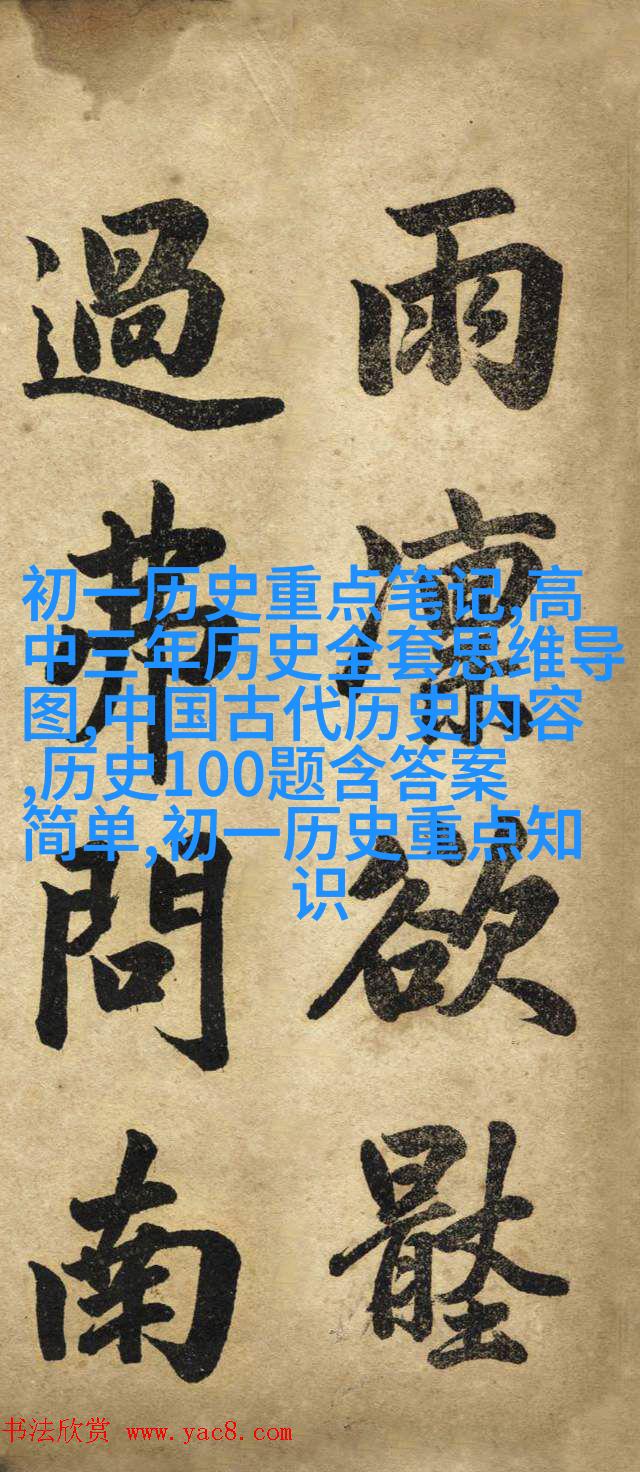 雨欲
過問南
初一历史重点笔记,高
中三年历史全套思维导
图,中国古代历史内容
,历史100题含答案
简单,初一历史重点知
识
书法欣赏 www.yac8.com